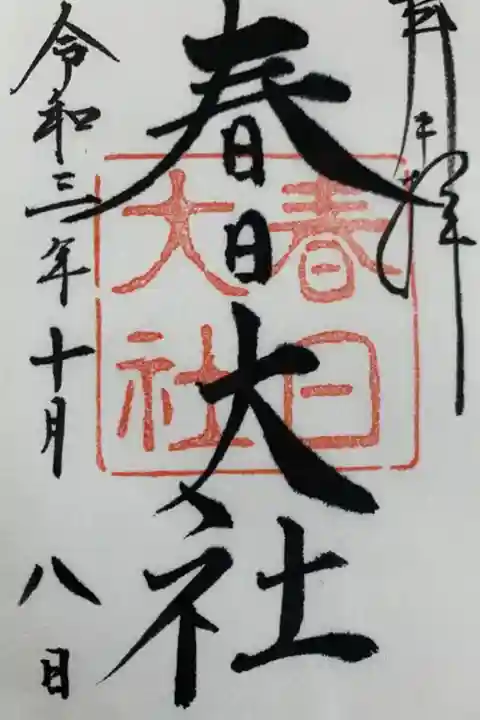 春日大社
令和三年十月八日
春日
大社